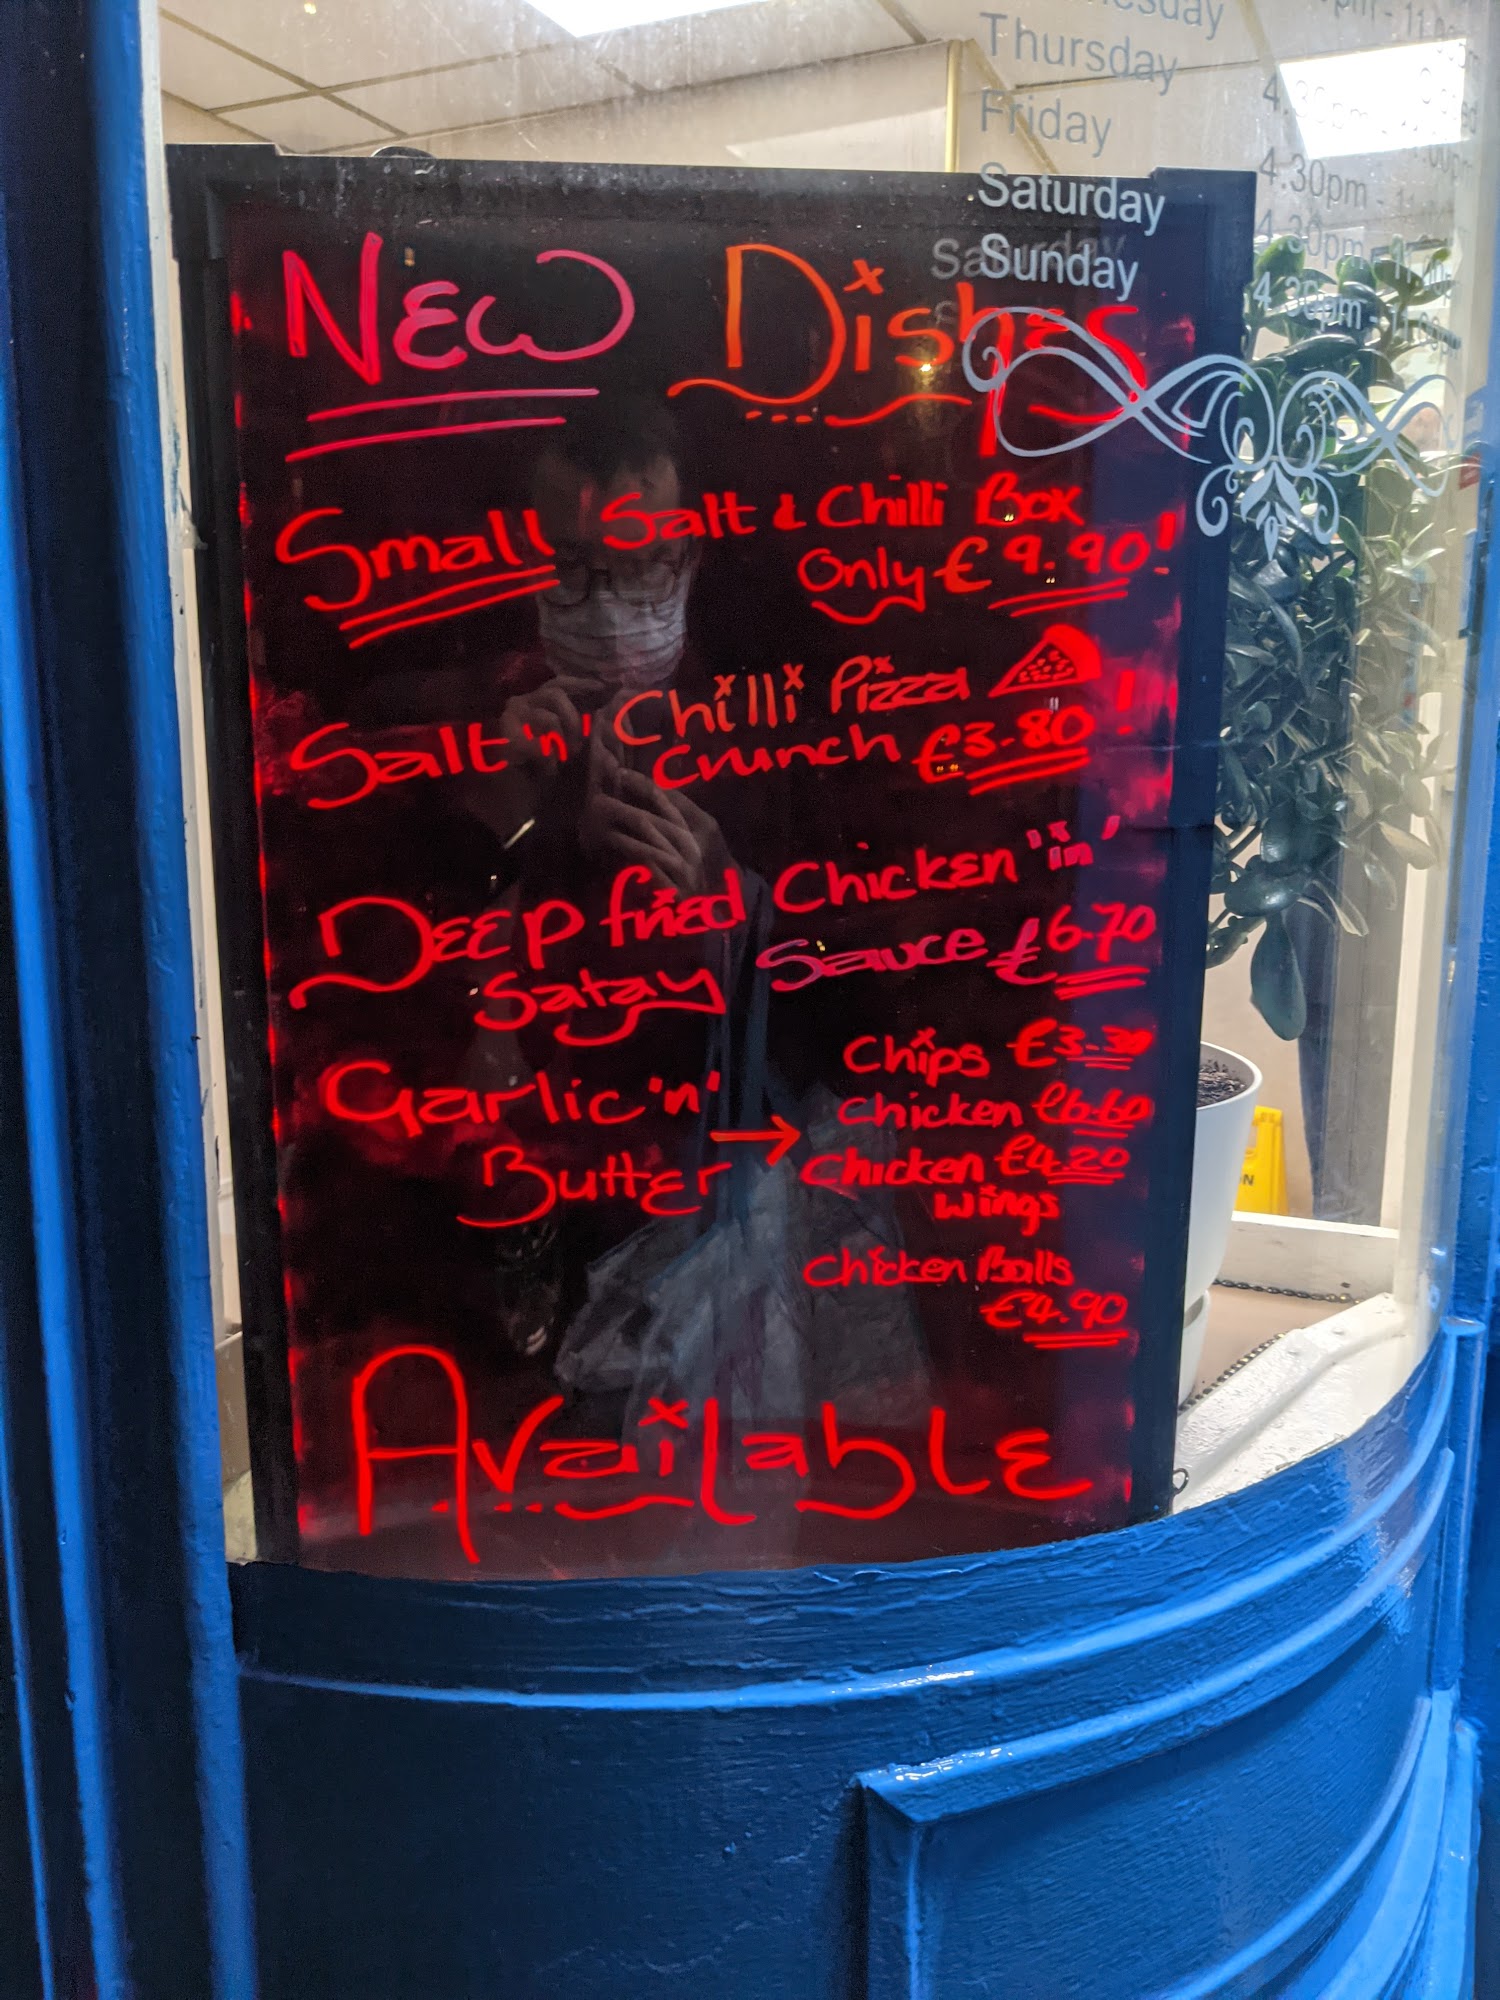 Thursday
Friday
Saturday
Sunday
4.30pm
4.30pm
4.30pm
NEW Dishes
Small Salt & Chilli Box
Only € 9.90!
Salt 'n' Chilli Pizza
Crunch €3.80!
DEEP fried Chicken 'in'
Satay Sauce €6.70
Garlic 'n'
Butter →
Chips €3.30
Chicken €6.60
Chicken €4.20
Wings
Chicken Balls
€4.90
Available